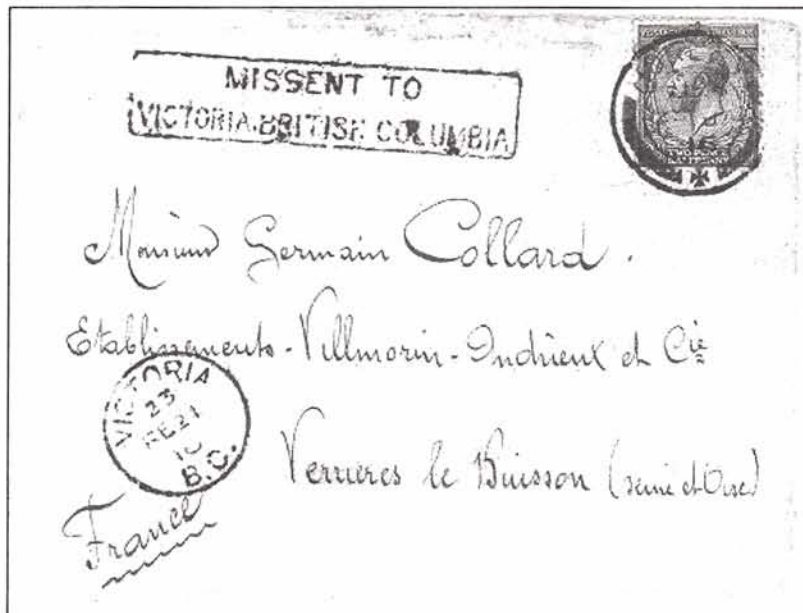 MISSENT TO
VICTORIA BRITISH COLUMBIA
TWO PENCE
HALFPENNY
16
Monsieur Germain Collard.
Etablissements-Villmorin-Andrieux et Cie
VICTORIA
23
FE 21
B.C.
Verrieres le Buisson (Seine et Oise)
France